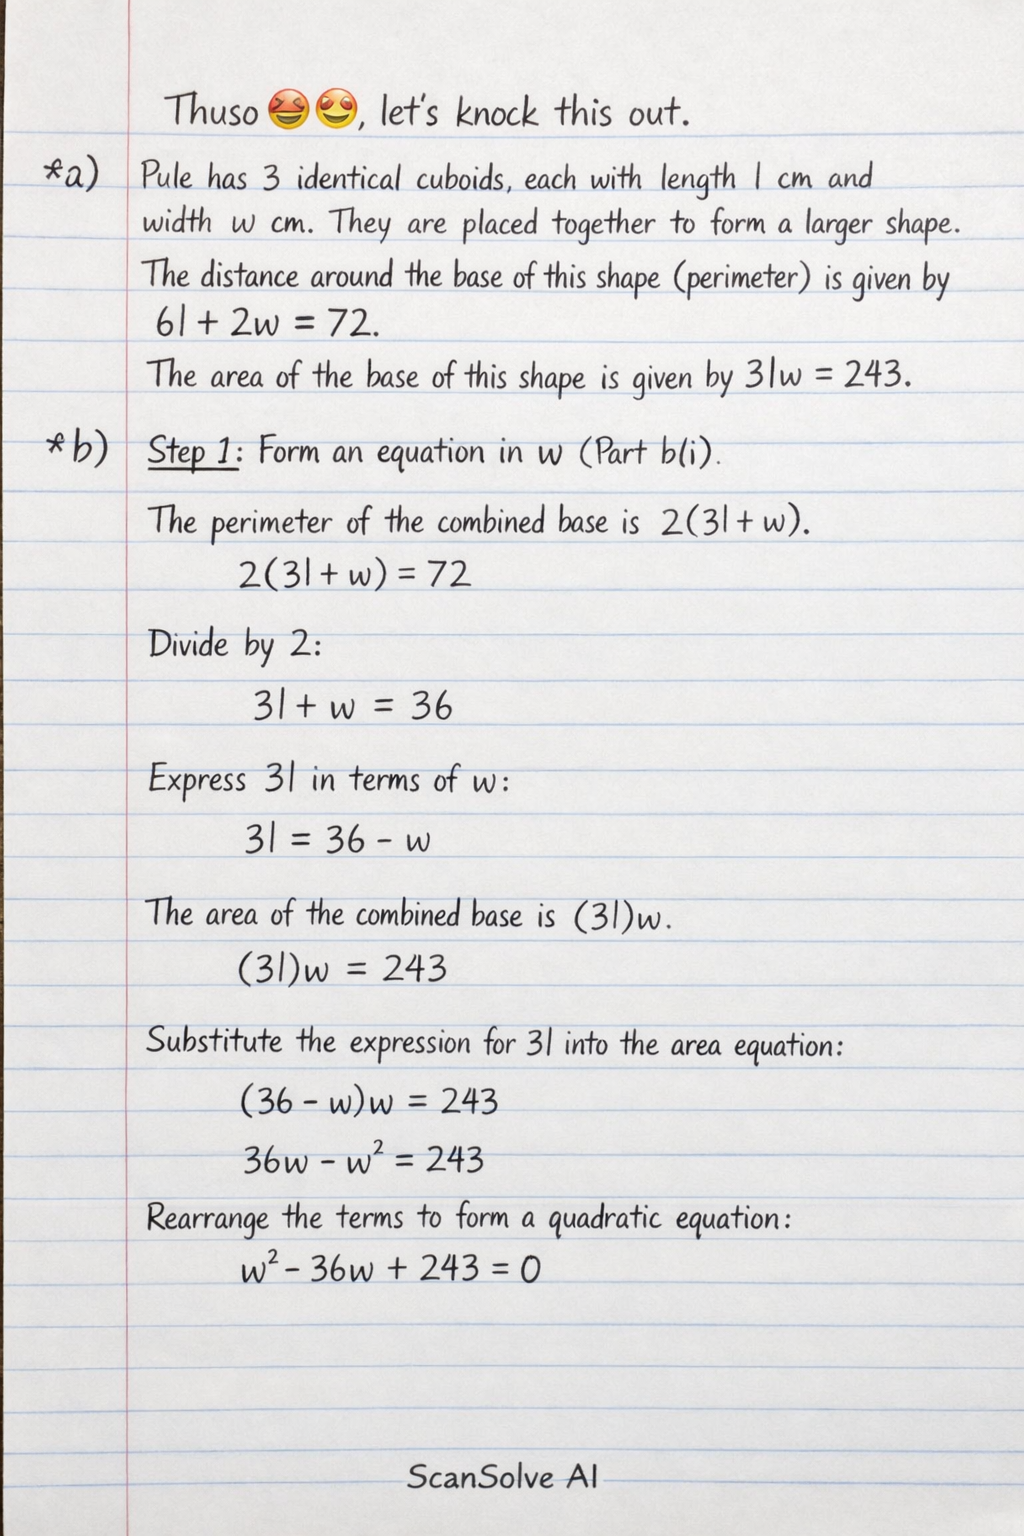 Thuso 😆😍, let's knock this out.
*a) Pule has 3 identical cuboids, each with length l cm and
width w cm. They are placed together to form a larger shape.
The distance around the base of this shape (perimeter) is given by
6l + 2w = 72.
The area of the base of this shape is given by 3lw = 243.
*b) Step 1: Form an equation in w (Part b(i).
The perimeter of the combined base is 2(3l + w).
2(3l + w) = 72
Divide by 2:
3l + w = 36
Express 3l in terms of w:
3l = 36 - w
The area of the combined base is (3l)w.
(3l)w = 243
Substitute the expression for 3l into the area equation:
(36 - w)w = 243
36w - w² = 243
Rearrange the terms to form a quadratic equation:
w² - 36w + 243 = 0
ScanSolve AI